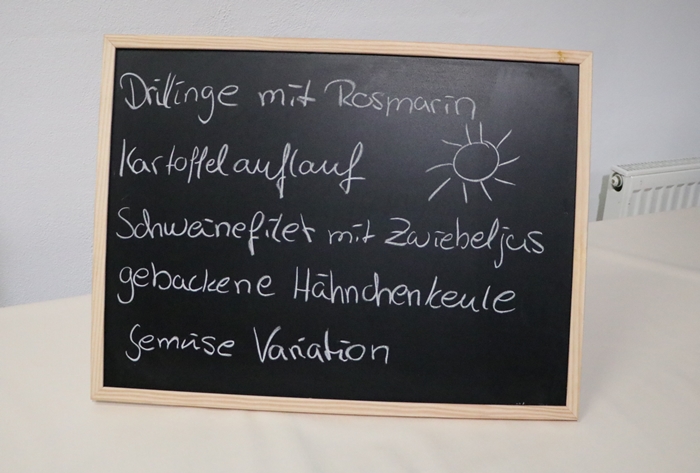 Drillinge mit Rosmarin
Kartoffelauflauf
Schweinefilet mit Zwiebeljus
gebackene Hähnchenkeule
Gemüse Variation